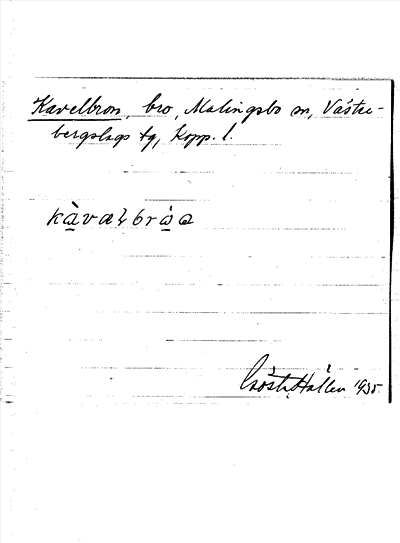 Kavelbron, bro, Malingsbo sn, Väster-
bergslags tg, Kopp. l.
kàvæɫbróẇa
Gösta Hallén 1935.